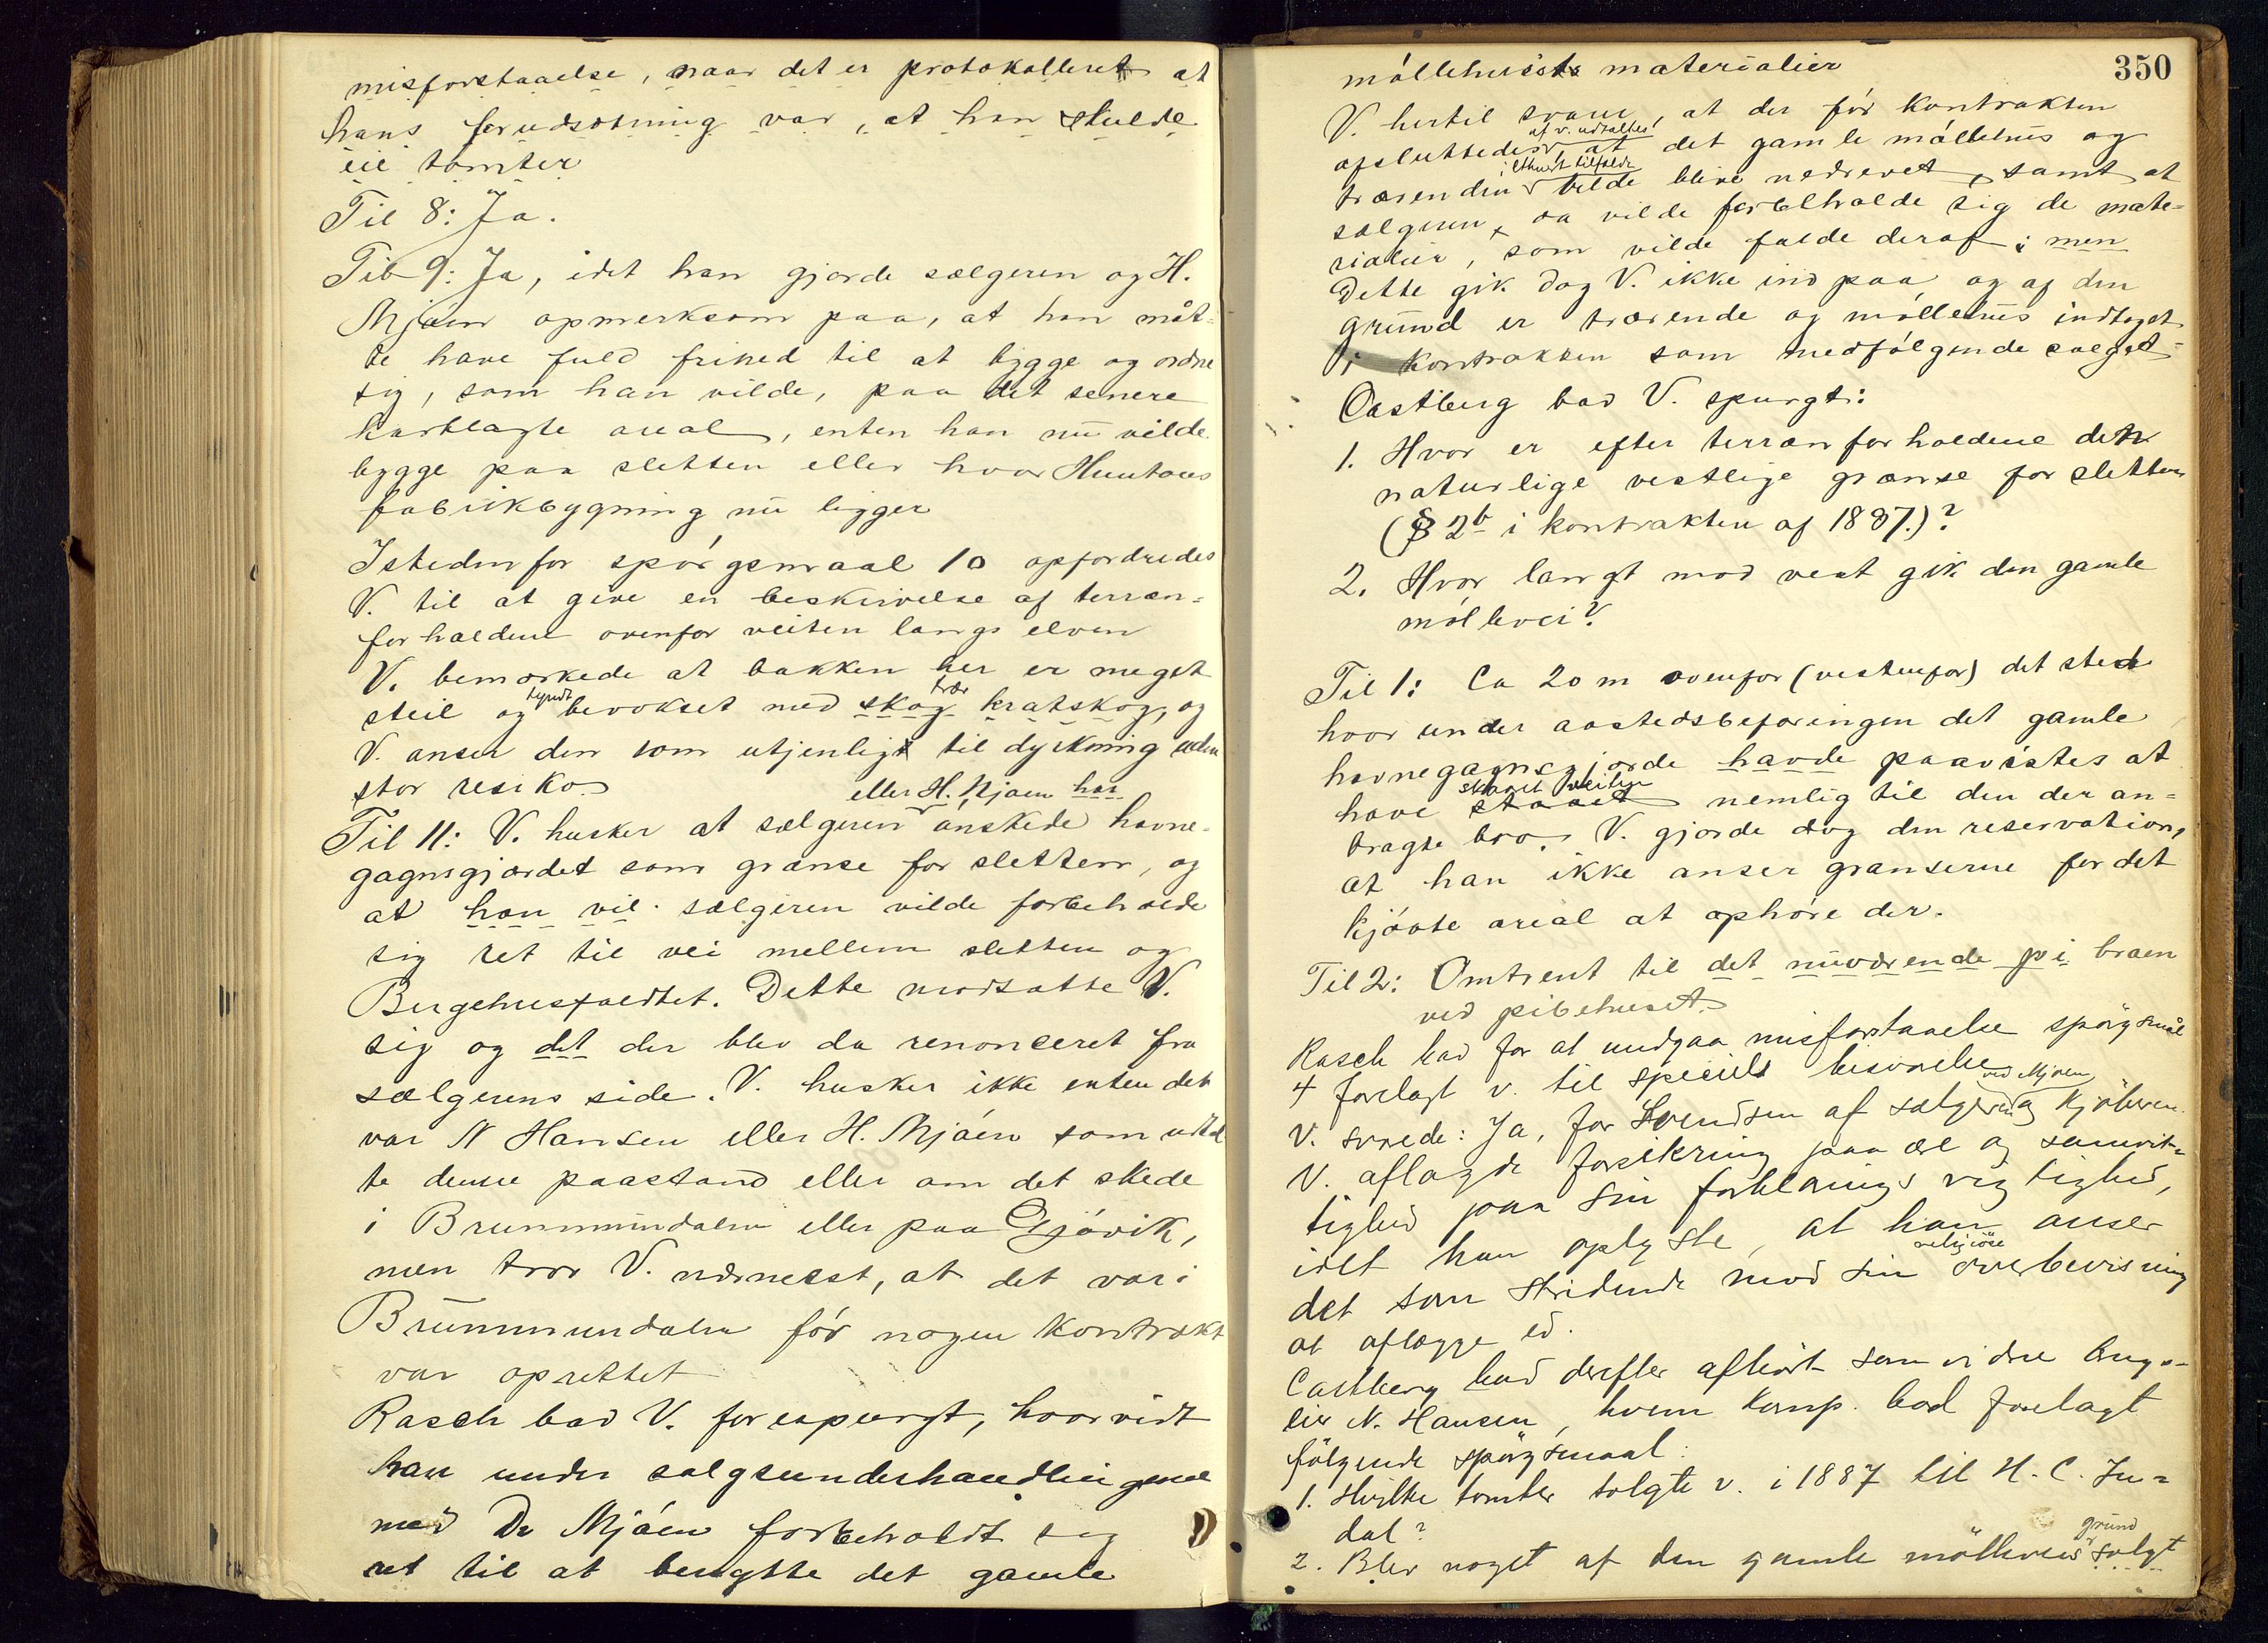 misforstaaelse, naar det er protokolleret at
hans forudsætning var, at han skulde
eie tomter
Til 8: Ja.
Til 9: Ja, idet han gjorde sælgeren og H.
Mjøen opmerksom paa, at han måt-
te have fuld frihed til at bygge og ordne
sig, som han vilde, paa det senere
kartlagte areal, enten han nu vilde
bygge paa sletten eller hvor Huntons
fabrikbygning nu ligger
Istedenfor spørgsmaal 10 opfordredes
V. til at give en beskrivelse af terræn-
forholdene ovenfor veiten langs elven
V. bemærkede at bakken her er meget
steil og tyndt bevokset med skog trær kratskog, og
V. anser den som utjenligt til dyrkning uden
stor resiko
Til 11: V. husker at sælgeren eller H. Mjøen har ønskede havne-
gagnsgjærdet som grænse for sletten, og
at han vil sælgeren vilde forbeholde
sig ret til vei mellem sletten og
Bergehusfaldtet. Dette modsatte V.
sig og det der blev da renonceret fra
sælgerens side. V. husker ikke enten det
var N Hansen eller H. Mjøen som udtal
te denne paastand eller om det skede
i Brummundalen eller paa Gjøvik,
men tror V. nærmest, at det var i
Brummundalen før nogen kontrakt
var oprettet
Rasch bad V. forespurgt, hvorvidt
han under salgsunderhandlingene
med Dr Mjøen forbeholdt sig
ret til at benytte det gamle
350
møllehusets materialier
V. hertil svarer, at der før kontrakten
afsluttedes af v. udtaltes, at det gamle møllehus og
trærenden i ethvert tilfælde vilde blive nedrevet, samt at
sælgeren da vilde forbeholde sig de mate-
rialier, som vilde falde deraf; men
Dette gik dog V. ikke ind paa og af den
grund er trærende og møllehus indtaget
i kontrakten som medfølgende salget
Castberg bad V. spurgt:
1. Hvor er efter terrænforholdene den
naturlige vestlige grænse for sletten
(§ 2b i kontrakten af 1887.)?
2. Hvor langt mod vest gik den gamle
møllevei?
Til 1: Ca 20 m ovenfor (vestenfor) det sted
hvor under aastedsbefaringen det gamle
havnegagnsgjærde havde paavistes at
have staaet skaaret veiten nemlig til den der an-
bragte bro. V. gjorde dog den reservation,
at han ikke anser grænserne for det
kjøbte areal at ophøre der.
Til 2: Omtrent til det nuværende pi broen
ved pibehuset
Rasch bad for at undgaa misforstaaelse spørgsmål
4 forelagt v. til speciel besvarelse
V. svarede: Ja, for Svendsen af sælgeren ved Mjøen og kjøberen.
V. aflagde forsikring paa ære og samvit-
tighed paa sin forklarings rigtighed,
idet han oplyste, at han anser
det som stridende mod sin religiöse overbevisning
at aflægge ed.
Castberg bad derefter afhørt som vidne brugs-
eier N. Hansen, hvem komp. bad forelagt
følgende spørgsmaal:
1. Hvilke tomter solgte v. i 1887 til H. C. In-
dal?
2. Blev noget af den gamle mölleveis grund solgt